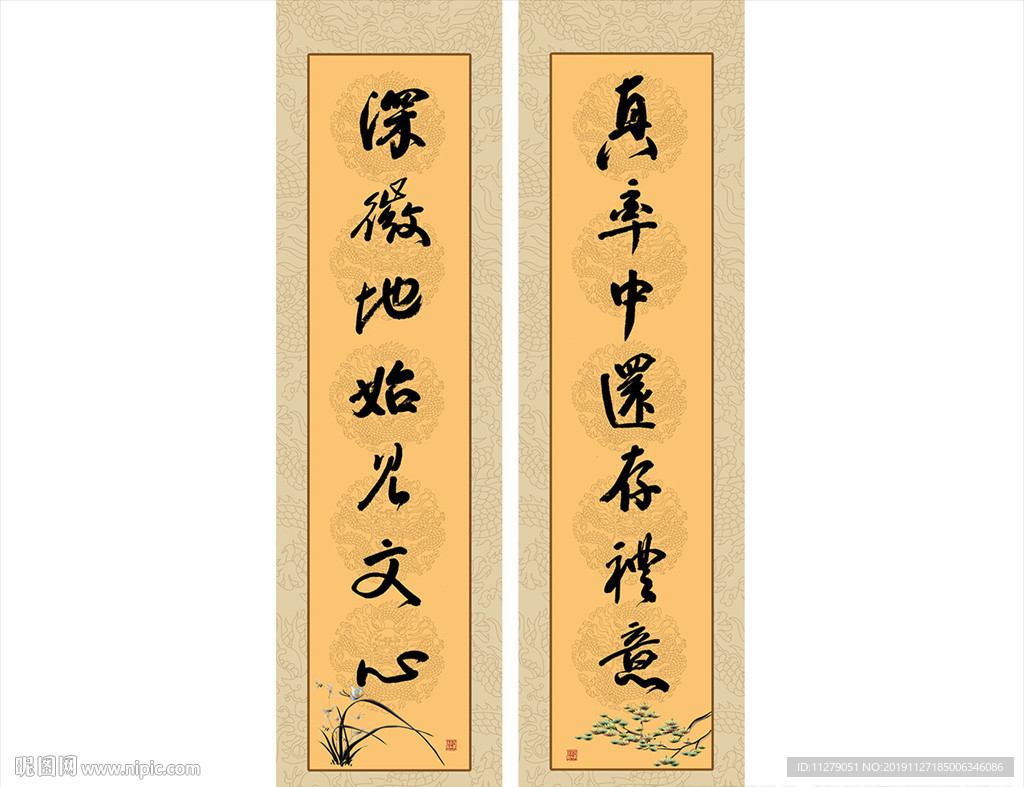 真率中還存禮意
深微地始見文心
昵图网 www.nipic.com
ID:11279051 NO:20191127185006346086